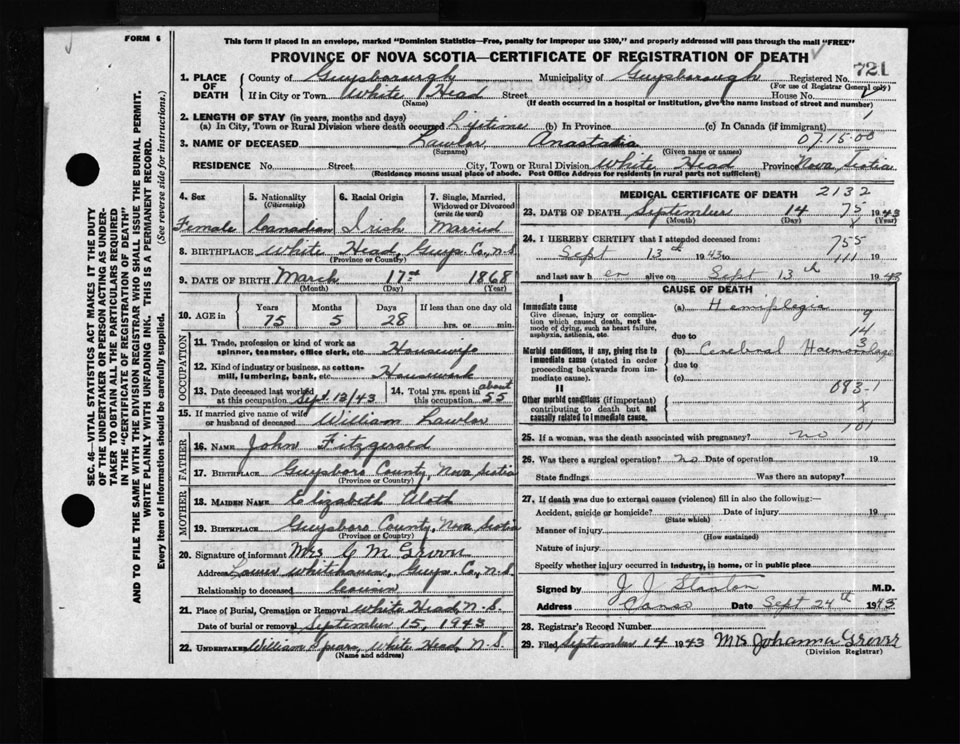 FORM 6
This form if placed in an envelope, marked "Dominion Statistics—Free, penalty for improper use $300," and properly addressed will pass through the mail "FREE"
PROVINCE OF NOVA SCOTIA—CERTIFICATE OF REGISTRATION OF DEATH
721
1. PLACE OF DEATH
County of Guysborough Municipality of Guysborough Registered No.
(For use of Registrar General only)
If in City or Town White Head Street House No.
(Name) (If death occurred in a hospital or institution, give the name instead of street and number)
2. LENGTH OF STAY (in years, months and days)
(a) In City, Town or Rural Division where death occurred Lifetime (b) In Province (c) In Canada (if immigrant)
1
07.15-00
3. NAME OF DECEASED Lawlor Anastatia
(Surname) (Given name or names)
RESIDENCE No. Street City, Town or Rural Division White Head Province Nova Scotia
(Residence means usual place of abode. Post Office Address for residents in rural parts not sufficient)
4. Sex 5. Nationality (Citizenship) 6. Racial Origin 7. Single, Married, Widowed or Divorced (write the word)
Female Canadian Irish Married
8. BIRTHPLACE White Head, Guys. Co., N.S
(Province or Country)
9. DATE OF BIRTH March 17 1868
(Month) (Day) (Year)
10. AGE in Years Months Days If less than one day old
75 5 28 hrs. or min.
OCCUPATION
11. Trade, profession or kind of work as spinner, teamster, office clerk, etc. Housewife
12. Kind of industry or business, as cotton-mill, lumbering, bank, etc. Housework
13. Date deceased last worked at this occupation Sept. 13/43 14. Total yrs. spent in this occupation about 55
15. If married give name of wife or husband of deceased William Lawlor
FATHER
16. NAME John Fitzgerald
17. BIRTHPLACE Guysboro County, Nova Scotia
(Province or Country)
MOTHER
18. MAIDEN NAME Elizabeth
19. BIRTHPLACE Guysboro County, Nova Scotia
(Province or Country)
20. Signature of informant Mrs C M
Address Whitehaven, Guys. Co., N.S.
Relationship to deceased cousin
21. Place of Burial, Cremation or Removal White Head, N.S.
Date of burial or removal September 15, 1943
22. UNDERTAKER William Spears, White Head N.S.
(Name and address)
MEDICAL CERTIFICATE OF DEATH 2132
23. DATE OF DEATH September 14 75 1943
(Month) (Day) (Year)
24. I HEREBY CERTIFY that I attended deceased from: 755
Sept 13th 1943 to 111
and last saw her alive on Sept 13th 1943
CAUSE OF DEATH
I
Immediate cause
Give disease, injury or complication which caused death, not the mode of dying, such as heart failure, asphyxia, asthenia, etc.
(a) Hemiplegia
9
due to 14
3
Morbid conditions, if any, giving rise to immediate cause (stated in order proceeding backwards from immediate cause).
(b) Cerebral Haemorrhage
due to
(c)
083-1
II
Other morbid conditions (if important) contributing to death but not causally related to immediate cause.
X
101
25. If a woman, was the death associated with pregnancy? no
26. Was there a surgical operation? no Date of operation 19
State findings Was there an autopsy?
27. If death was due to external causes (violence) fill in also the following:—
Accident, suicide or homicide? Date of injury 19
(State which)
Manner of injury
(How sustained)
Nature of injury
Specify whether injury occurred in industry, in home, or in public place
Signed by J. J. Stanton M.D.
Address Canso Date Sept 24th 1943
28. Registrar's Record Number
29. Filed September 14 1943 Mrs Johanna
(Division Registrar)
SEC. 46—VITAL STATISTICS ACT MAKES IT THE DUTY
OF THE UNDERTAKER OR PERSON ACTING AS UNDER-
TAKER TO OBTAIN ALL THE PARTICULARS REQUIRED
IN THE "CERTIFICATE OF REGISTRATION OF DEATH"
AND TO FILE THE SAME WITH THE DIVISION REGISTRAR WHO SHALL ISSUE THE BURIAL PERMIT.
WRITE PLAINLY WITH UNFADING INK. THIS IS A PERMANENT RECORD.
Every item of information should be carefully supplied. (See reverse side for instructions.)